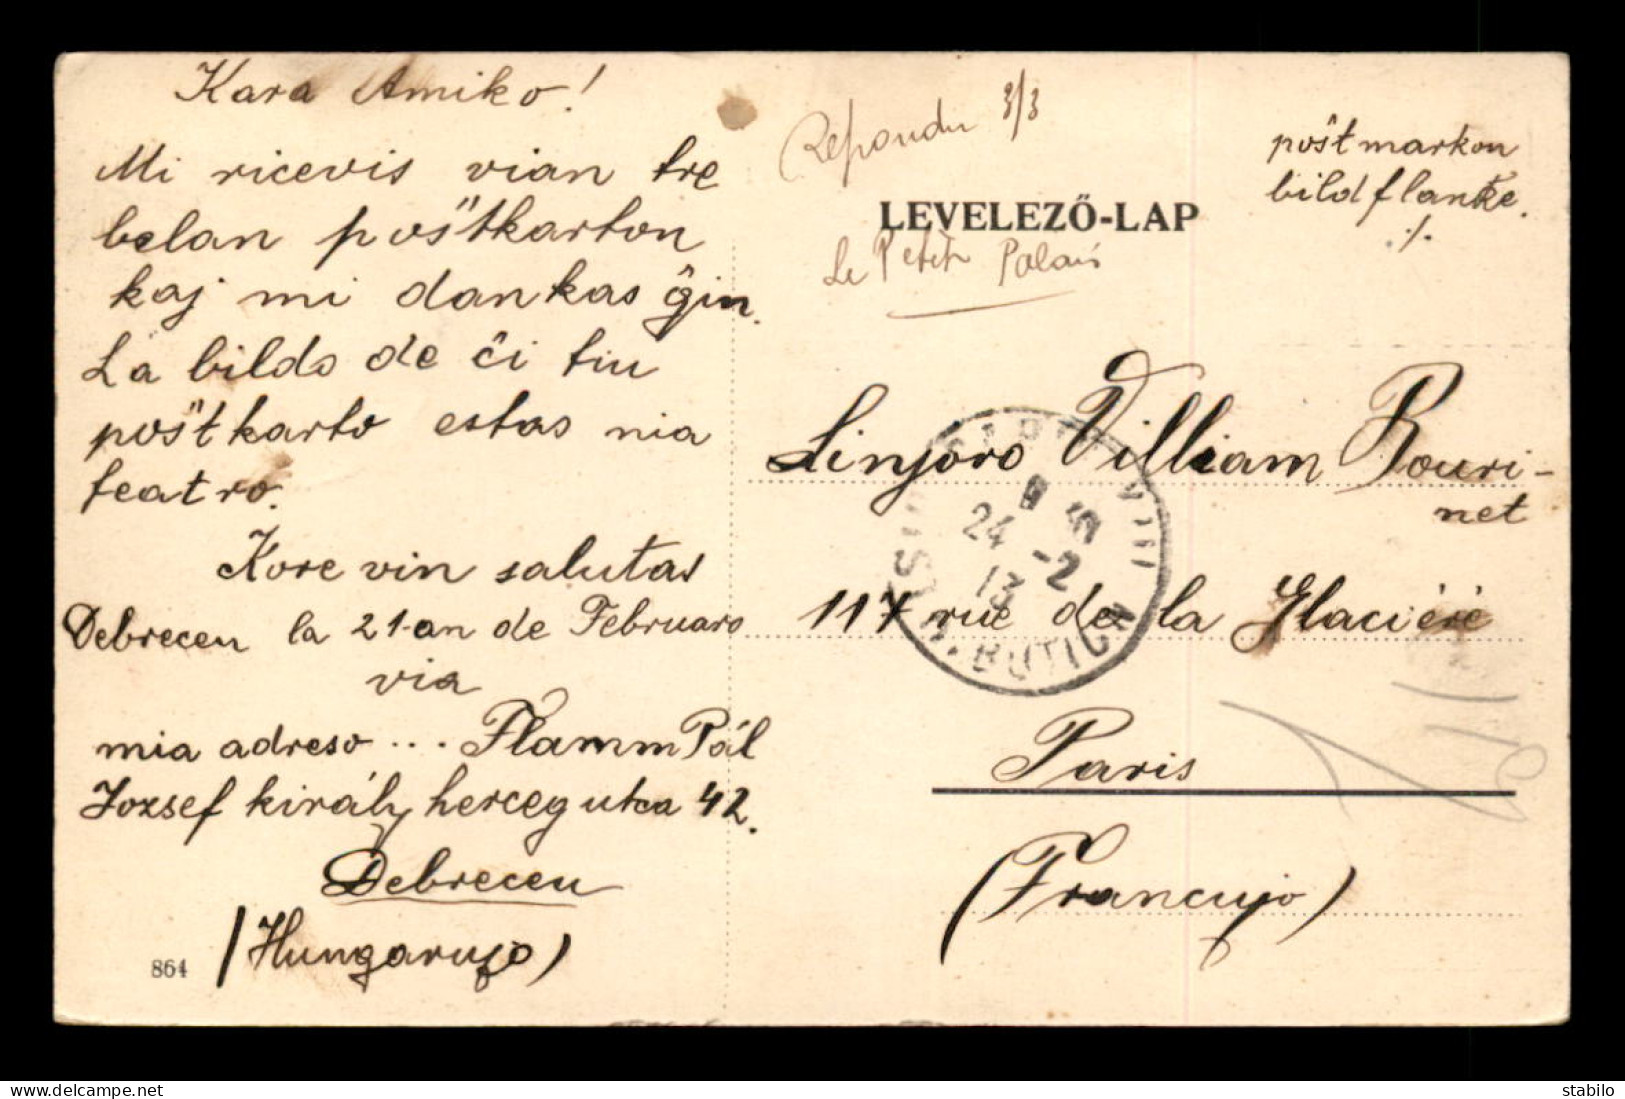 Kara Amiko!
Mi ricevis vian tre
belan poŝtkarton
kaj mi dankas ĝin.
La bildo de ĉi tiu
poŝtkarto estas nia
teatro.
Kore vin salutas
Debrecen la 21-an de Februaro
via
mia adreso ... Flamm Pál
Jozsef király herceg utca 42.
Debrecen
(Hungarujo)
864
Repondu 3/3
LEVELEZŐ-LAP
Le Petit Palais
poŝtmarkon
bildflanke.
./.
Sinjoro Villiam Bouri-
net
117 rue de la Glaciére
Paris
(Francujo)
24 -2
13
DISTRIBUTION
delcampe.net
stabilo